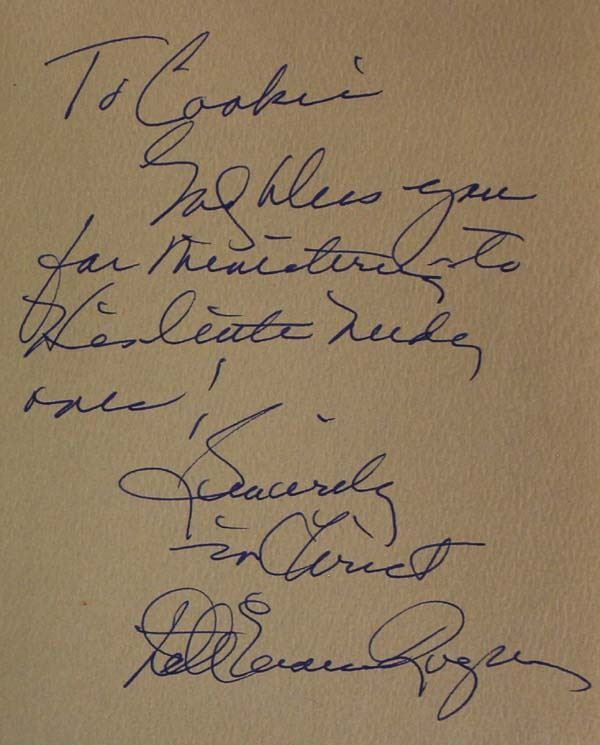 To Cookie
God bless you
for ministering to
His little needy
ones!
Sincerely
in Christ
Dale Evans Rogers